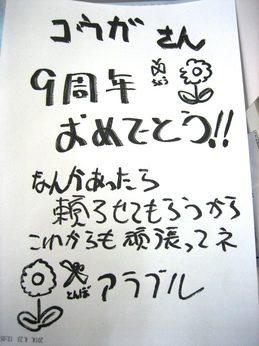 コウガさん
9周年
めちょう
おめでとう!!
なんかあったら
頼らせてもらうから
これからも頑張ってネ
とんぼ
アラブル